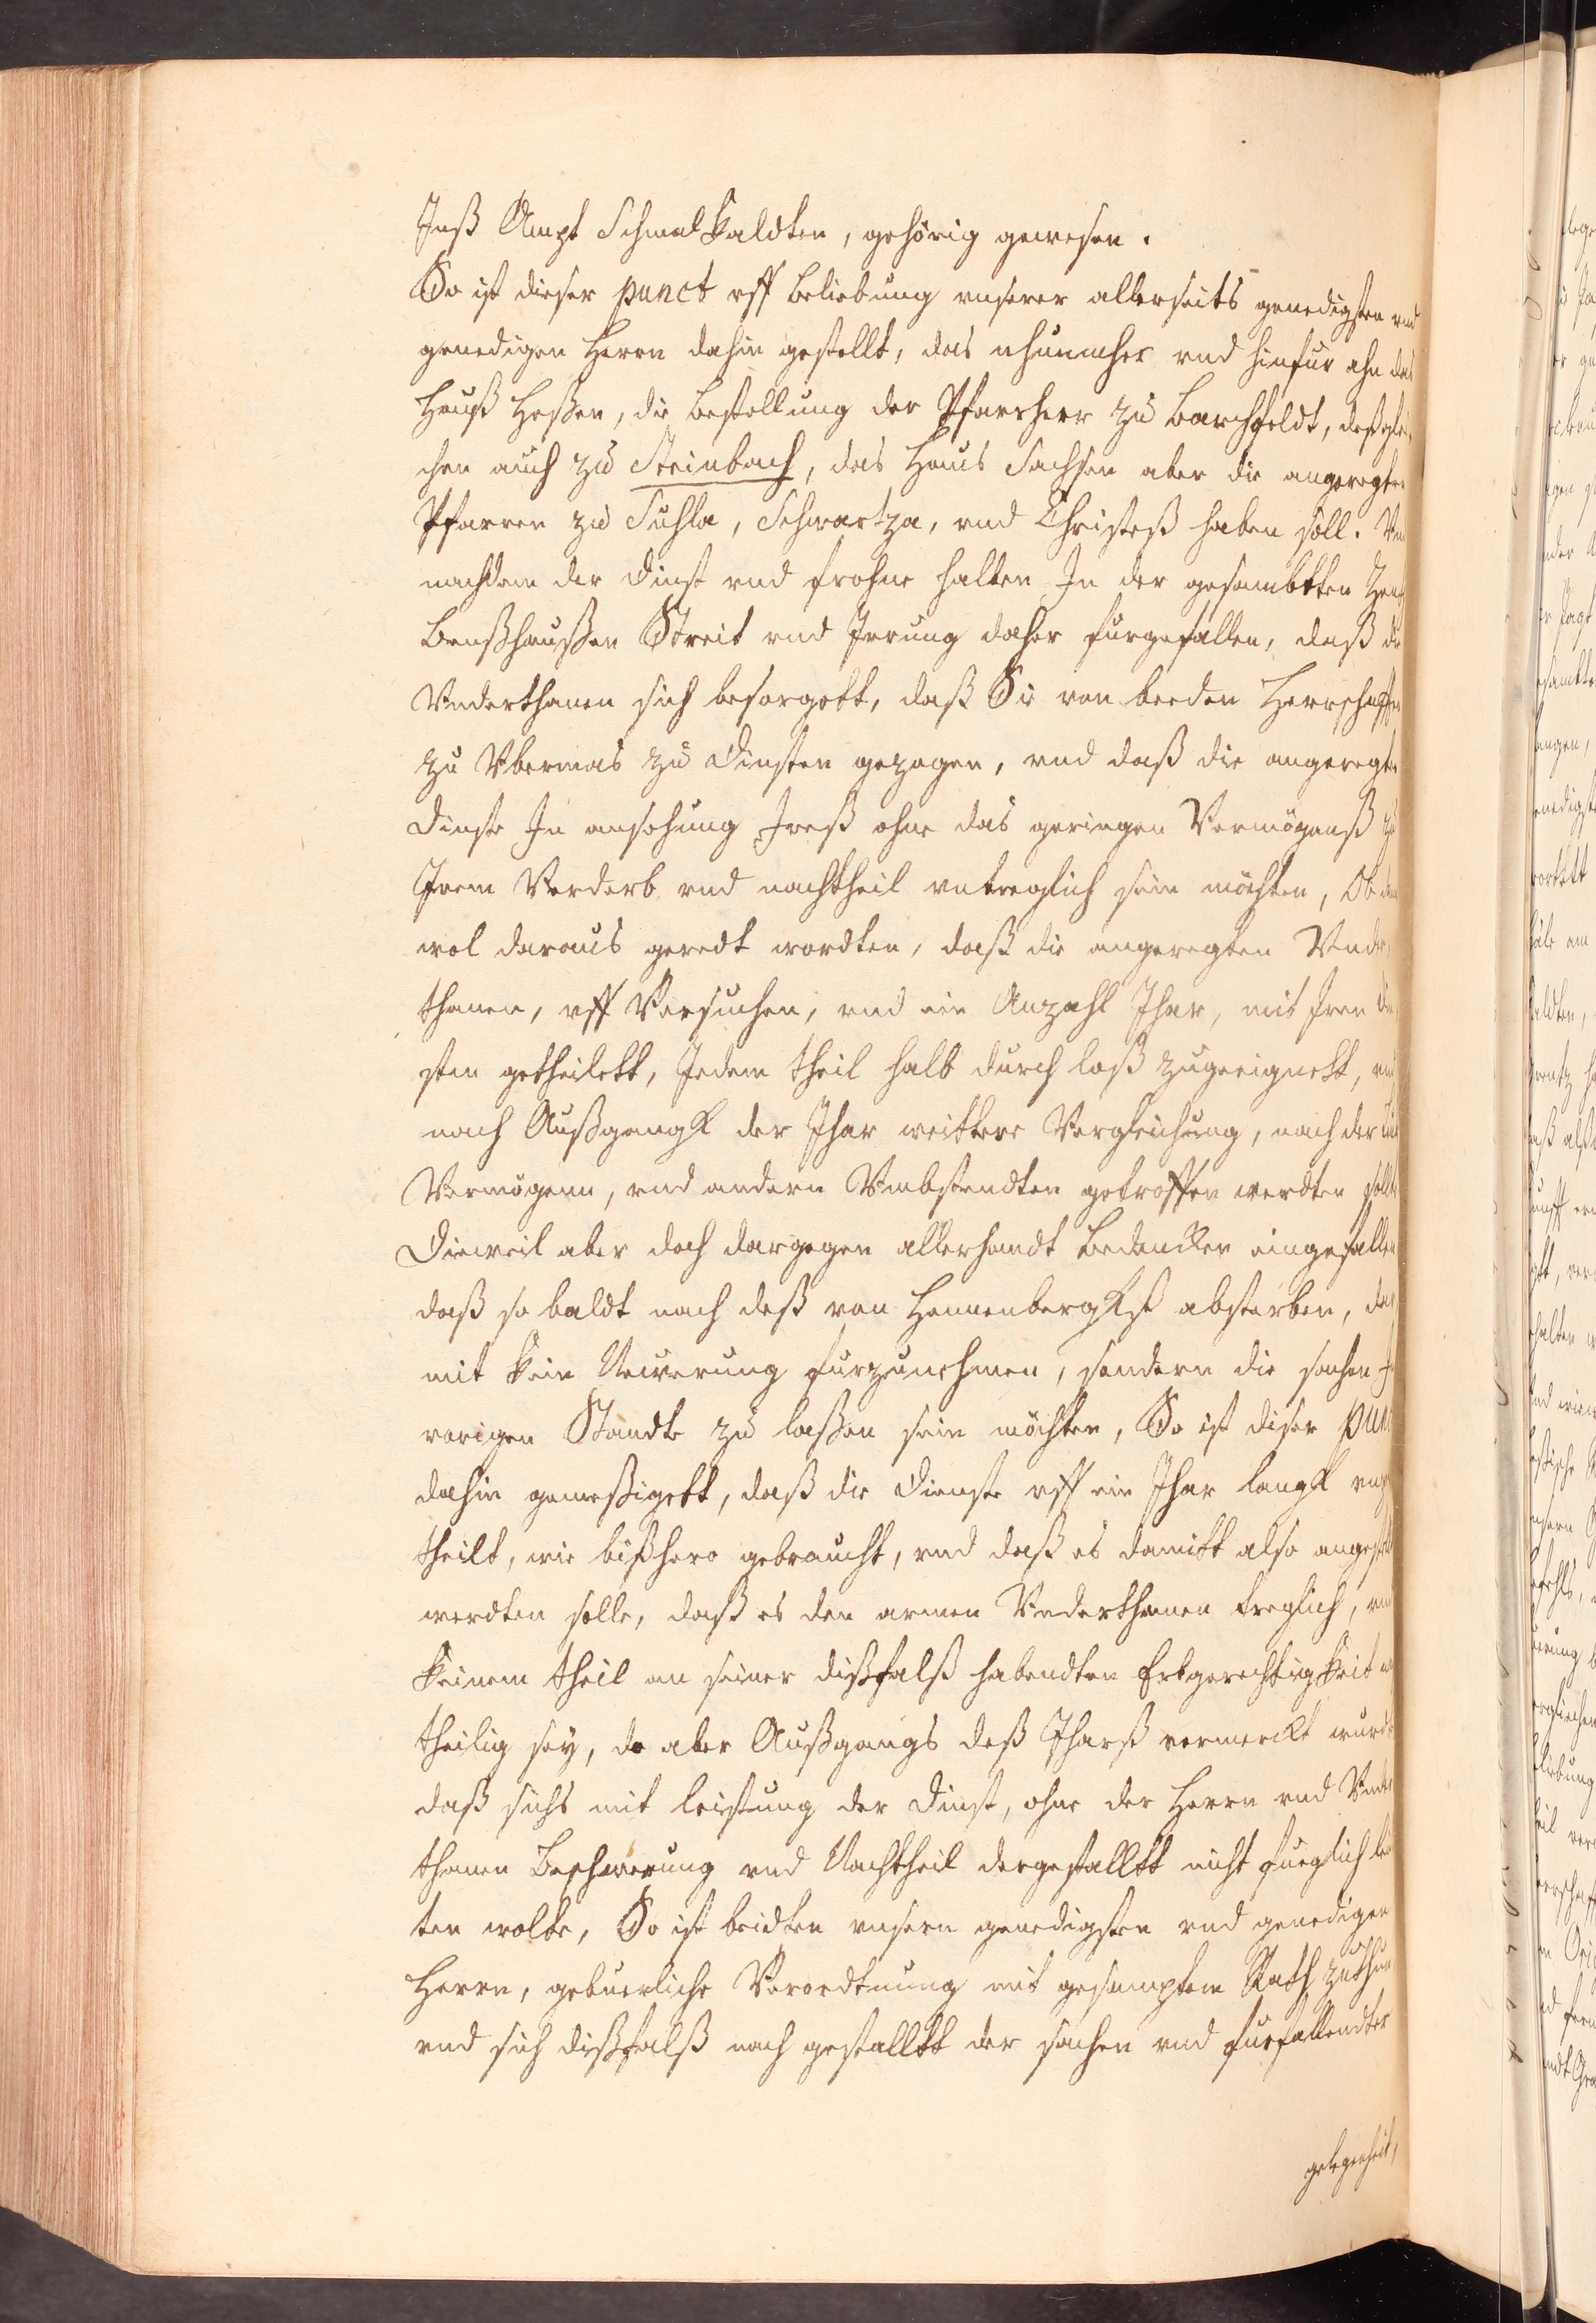 Inß Ampt Schmalkaldten, gehörig gewesen.
So ist dieser punct vff beliebung vnserer allerseits genedigsten vnd
genedigen Herrn dahin gestellt, das nhunmher vnd hinfur ahn das
Hauß Heßen, die bestellung der Pfarrherr zu Barchfeldt, deßglei-
chen auch zu Steinbach, das Haus Sachsen aber die angeregten
Pfarren zu Suhla, Schwartza, vnd Christeß haben soll. Vnd
nachdem der dinst vnd frohne halben In der gesambtten
Benßhaußen Streit vnd Irrung daher furgefallen, daß die
Vnderthanen sich besorgett, daß Sie von beeden Herrschafften
zu Vbermas zu dinsten gezogen, vnd daß die angeregte
dinste In ansehung Ireß ohne das geringen Vermögenß zu
Irem Verderb vnd nachtheil vntreglich sein möchten, Ob dann
wol daraus geredt wordten, daß die angeregten Vnder-
thanen, vff Versuchen, vnd ein Anzahl Jhar, mit Iren din-
sten getheilett, Jedem theil halb durch loß zugeeignett, vnd
nach Außgangk der Jhar weittere Vergleichung, nach der
Vermögenn, vnd andern Vmbstendten getroffen werdten sollte
Dieweil aber doch dargegen allerhandt bedencken eingefallen
daß so baldt nach deß von Hennenbergkß absterben, da-
mit kein Neuerung furzunehmen, sondern die sachen In
vorigen Standte zu laßen sein möchten, So ist diser punct
dahin gemeßigett, daß die dienste vff ein Jhar langk
theilt, wie bißhero gebraucht, vnd daß es damitt also angestelt
werdten solle, daß es den armen Vnderthanen treglich, vnd
keinem theil an seiner dißfalß habendten Erbgerechtigkeit
theilig sey, do aber Außgangs deß Jharß vermerckt wurde
daß sichs mit leistung der dinst, ohne der Herrn vnd Vnder-
thanen Beschwerung vnd Nachtheil dergestalltt nicht fueglich lei-
ten wolte, So ist beidten vnsern genedigsten vnd genedigen
Herrn, gebuerliche Verordtnung mit gesamptem Rath zuthun
vnd sich dißfalß nach gestalltt der sachen vnd furfallendter
gelegenheit,